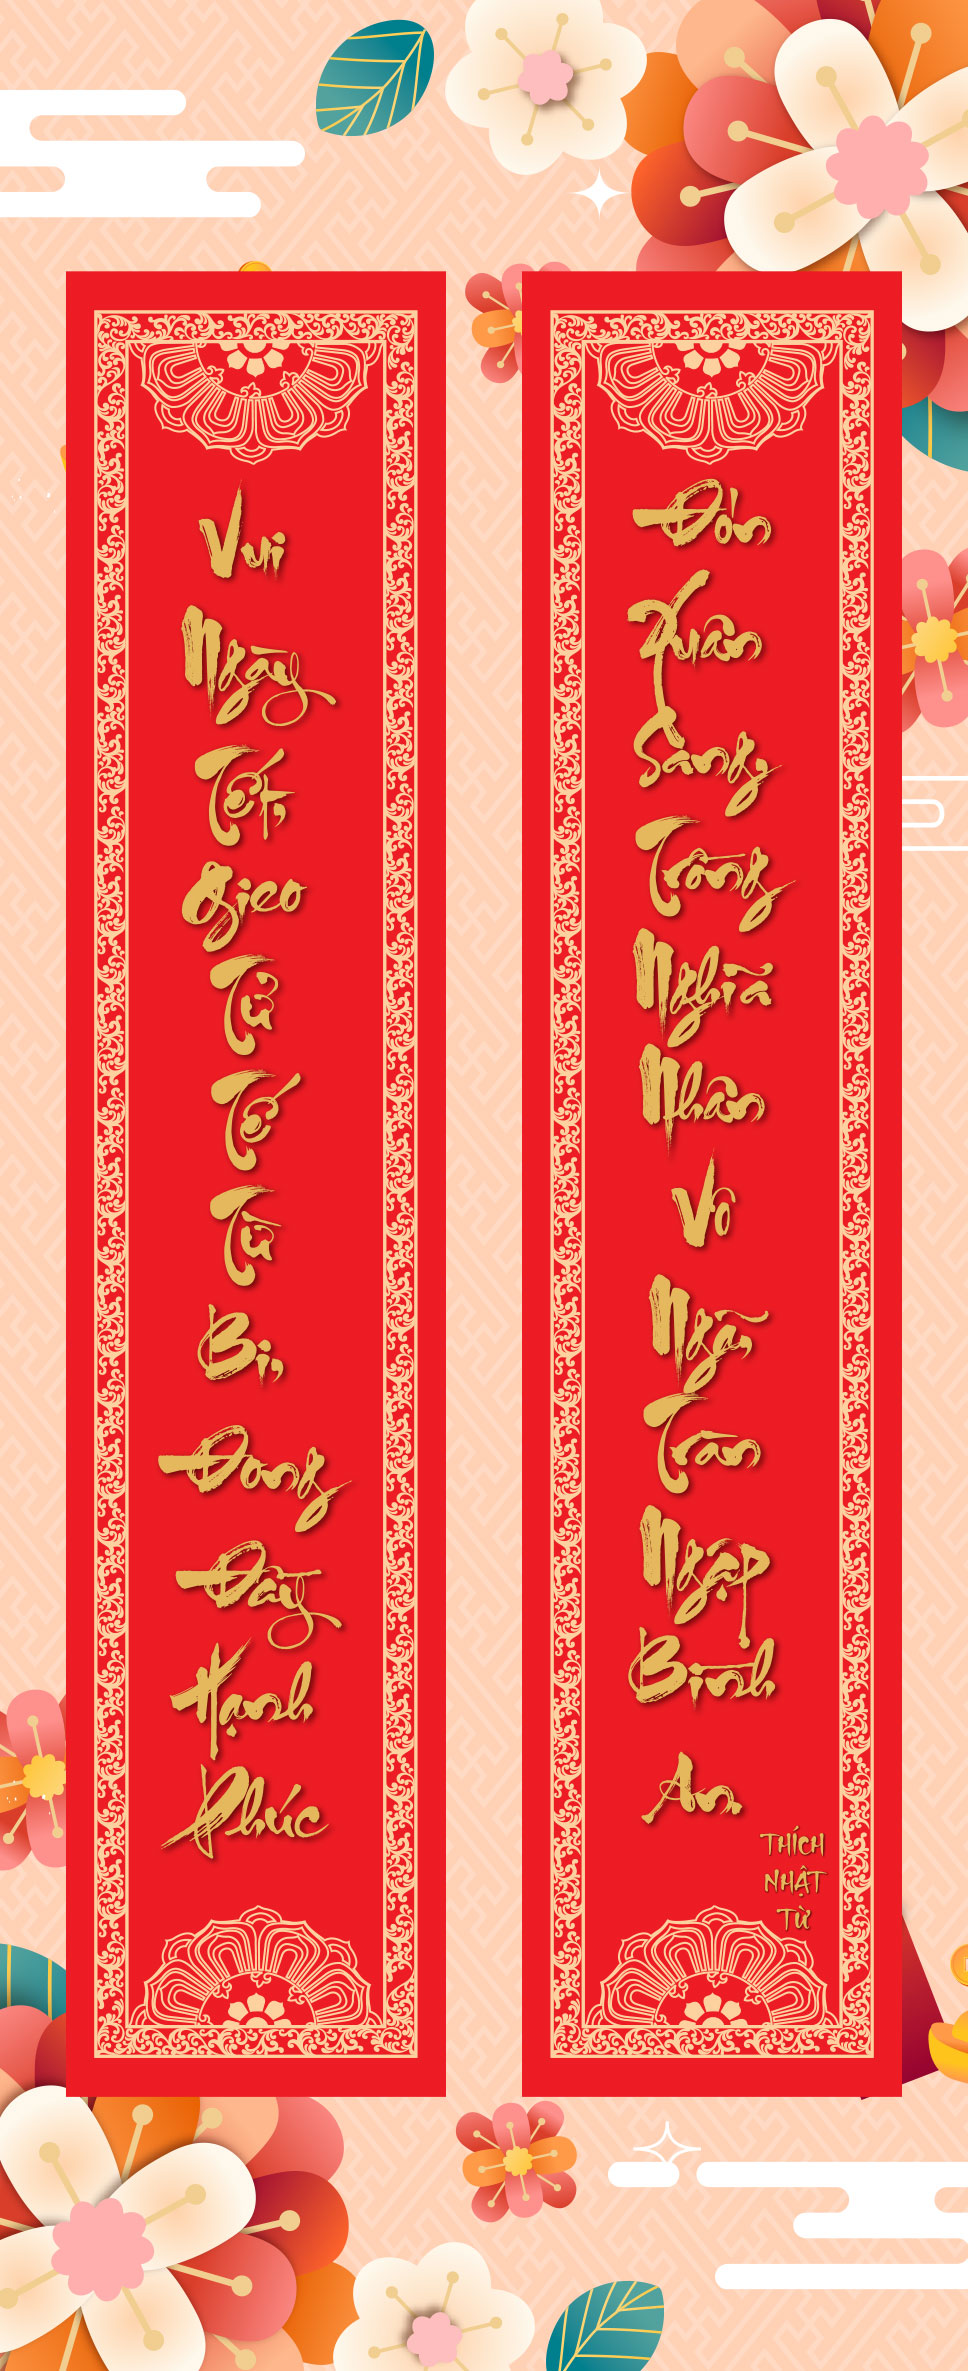 Vui
Ngày
Tết,
Gieo
Tử
Tế
Từ
Bi,
Đong
Đầy
Hạnh
Phúc
Đón
Xuân
Sang,
Trồng
Nghĩa
Nhân
Vô
Ngã,
Tràn
Ngập
Bình
An.
THÍCH
NHẬT
TỪ